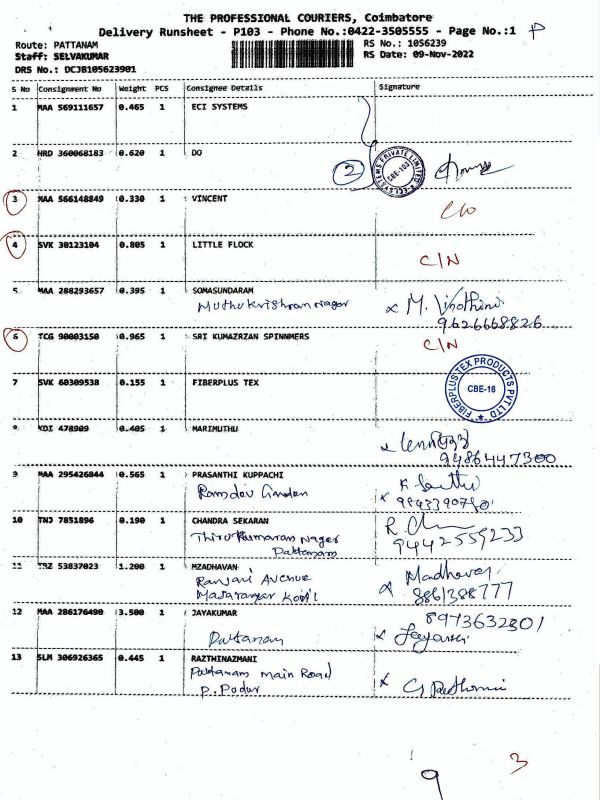 THE PROFESSIONAL COURIERS, Coimbatore
Delivery Runsheet - P103 - Phone No.:0422-3505555 - Page No.:1 P
Route: PATTANAM
RS No.: 1056239
Staff: SELVAKUMAR
RS Date: 09-Nov-2022
DRS No.: DCJB105623901
S No Consignment No Weight PCS Consignee Details Signature
1 MAA 569111657 0.465 1 ECI SYSTEMS
2 HRD 360068183 0.620 1 DO
2 ECI SYSTEMS PRIVATE LIMITED CBE-103
3 MAA 566148849 0.330 1 VINCENT
4 SVK 30123104 0.805 1 LITTLE FLOCK C/N
5 MAA 288293657 0.395 1 SOMASUNDARAM
Muthukrishnan Nagar x M. Vinothini
9626668826
6 TCG 90003150 0.965 1 SRI KUMAZRZAN SPINNMERS C/N
7 SVK 60309538 0.155 1 FIBERPLUS TEX
FIBERPLUS TEX PRODUCTS PVT LTD CBE-16
KDI 478909 0.405 1 MARIMUTHU
9486447300
9 MAA 295426844 0.565 1 PRASANTHI KUPPACHI
Ramdev Garden
10 TNJ 7851896 0.190 1 CHANDRA SEKARAN
Thirukumaran Nagar
9442559233
Pattanam
11 TRZ 53837023 1.200 1 MZADHAVAN
Ranjani Avenue Madhavan
8861388777
12 MAA 286176490 3.500 1 JAYAKUMAR
8973632301
Pattanam
13 SLM 306926365 0.445 1 RAZTHINAZMANI
Pattanam main Road
P. Pudur
9 3